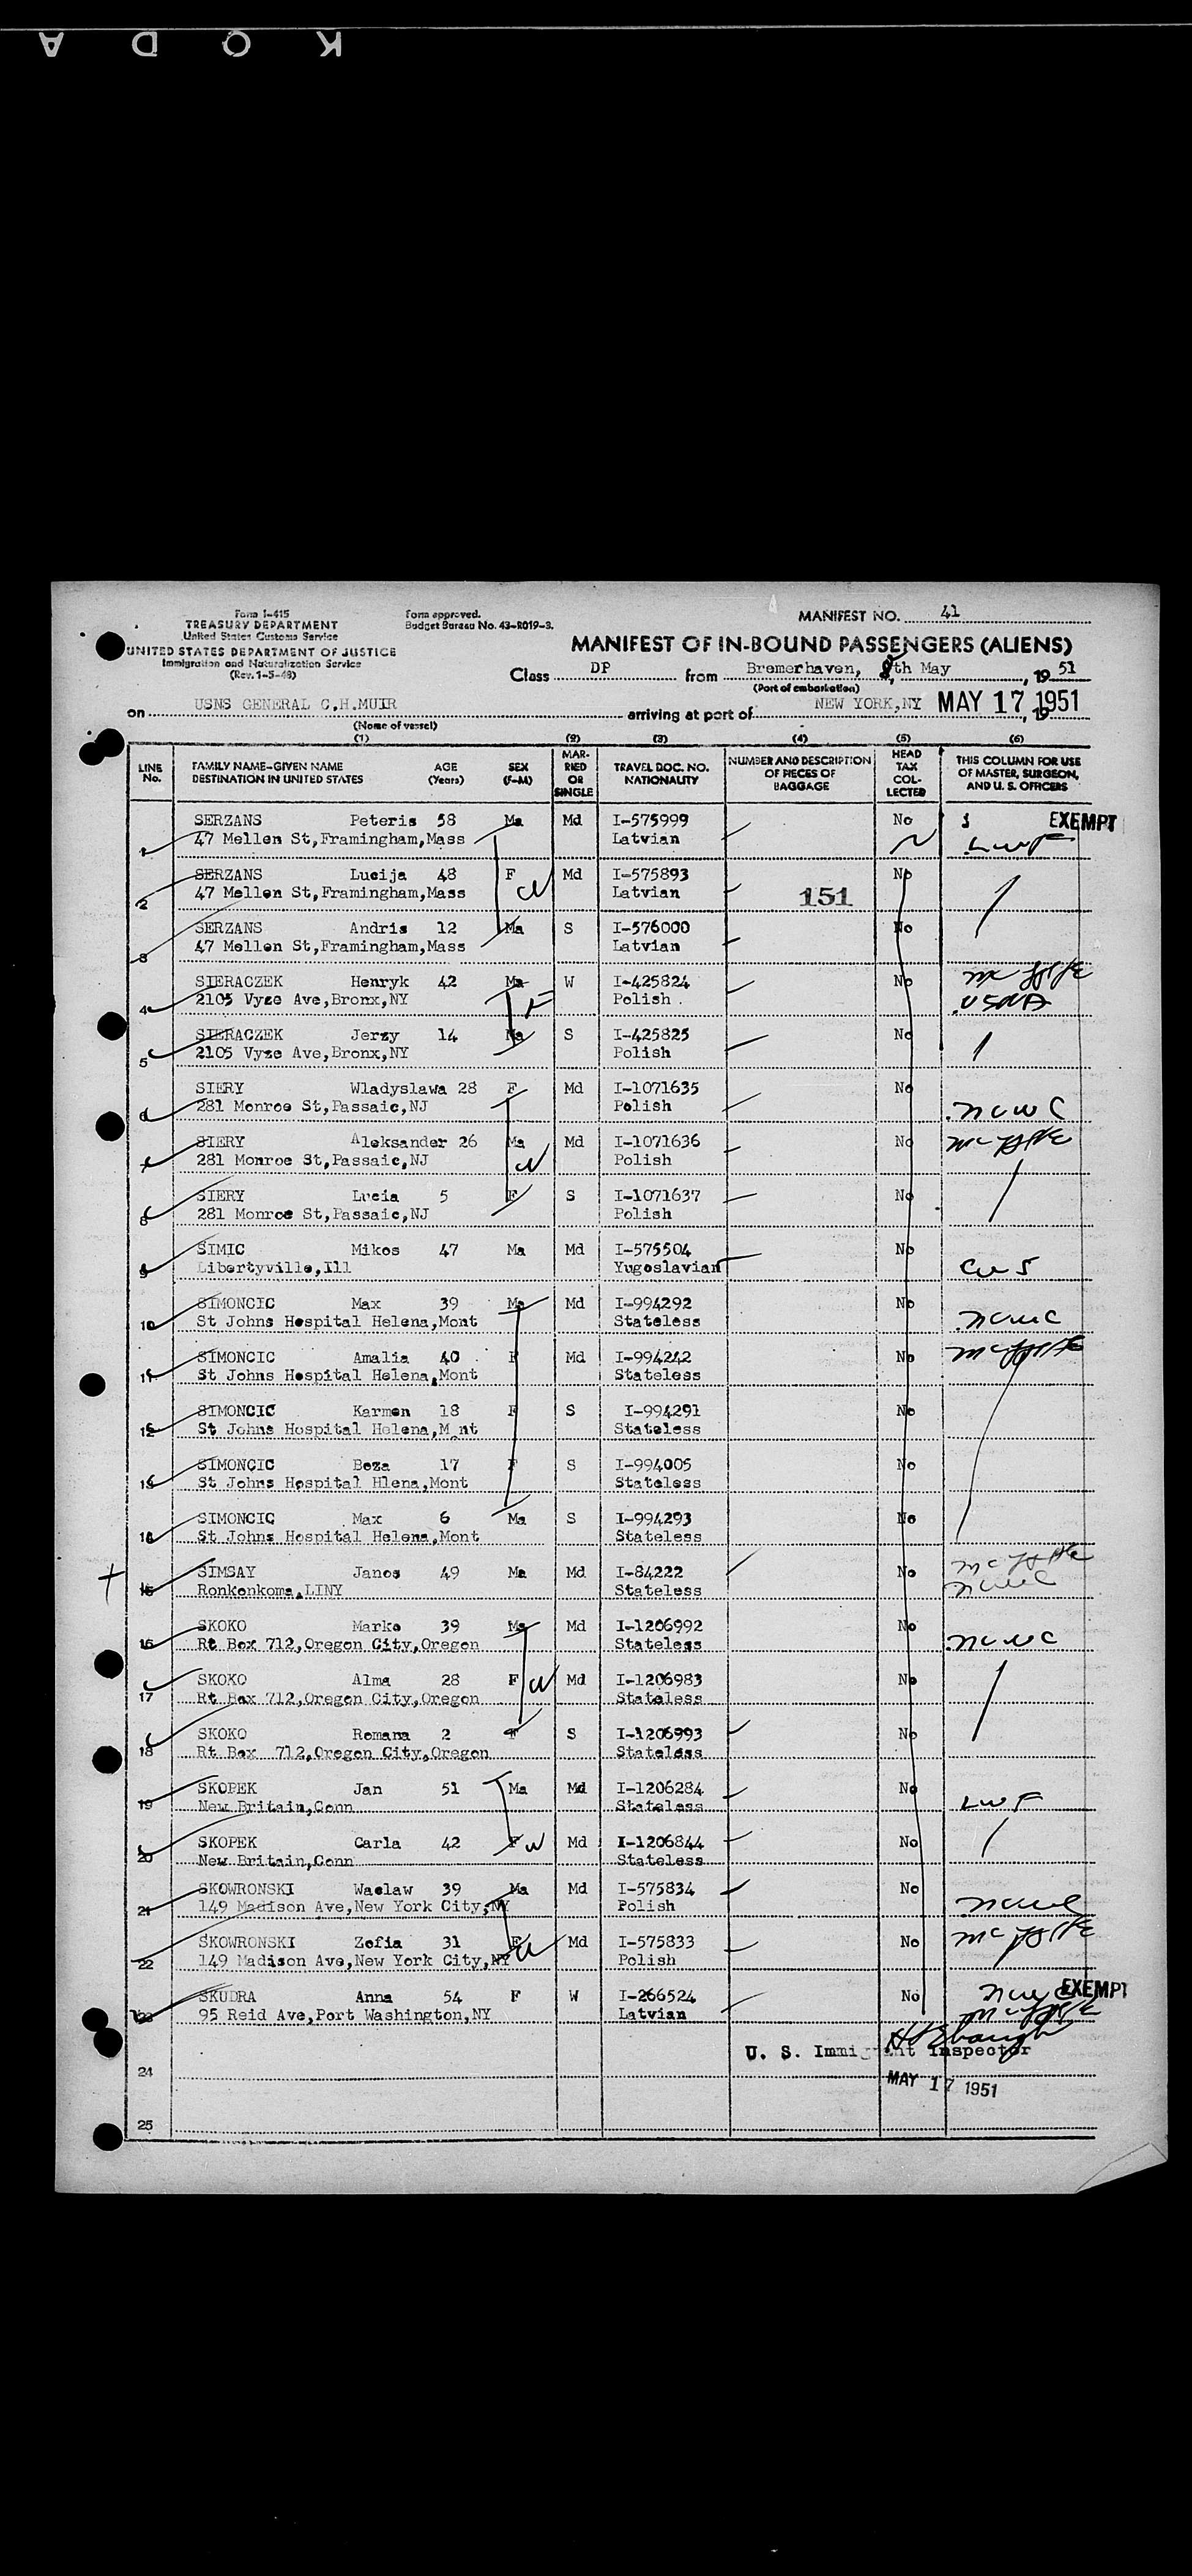 K Q D A
Form I-415
TREASURY DEPARTMENT
United States Customs Service
UNITED STATES DEPARTMENT OF JUSTICE
Immigration and Naturalization Service
(Rev. 1-5-48)
Form approved.
Budget Bureau No. 43-R019-3.
MANIFEST NO. 41
MANIFEST OF IN-BOUND PASSENGERS (ALIENS)
Class DP from Bremerhaven, 8th May, 19 51
(Port of embarkation)
on USNS GENERAL C.H.MUIR arriving at port of NEW YORK,NY MAY 17 1951, 19
(Name of vessel)
(1) (2) (3) (4) (5) (6)
LINE No. FAMILY NAME-GIVEN NAME DESTINATION IN UNITED STATES AGE (Years) SEX (F-M) MARRIED OR SINGLE TRAVEL DOC. NO. NATIONALITY NUMBER AND DESCRIPTION OF PIECES OF BAGGAGE HEAD TAX COLLECTED THIS COLUMN FOR USE OF MASTER, SURGEON, AND U. S. OFFICERS
1 SERZANS Peteris 58 Ma Md I-575999 No EXEMPT
47 Mellen St,Framingham,Mass Latvian LWF
2 SERZANS Lucija 48 F Md I-575893 No
47 Mellen St,Framingham,Mass Latvian 151
3 SERZANS Andris 12 Ma S I-576000 No
47 Mellen St,Framingham,Mass Latvian
4 SIERACZEK Henryk 42 Ma W I-425824 No
2105 Vyse Ave,Bronx,NY Polish USNA
5 SIERACZEK Jerzy 14 Ma S I-425825 No
2105 Vyse Ave,Bronx,NY Polish
6 SIERY Wladyslawa 28 F Md I-1071635 No
281 Monroe St,Passaic,NJ Polish NCWC
7 SIERY Aleksander 26 Ma Md I-1071636 No
281 Monroe St,Passaic,NJ Polish
8 SIERY Lucia 5 F S I-1071637 No
281 Monroe St,Passaic,NJ Polish
9 SIMIC Mikos 47 Ma Md I-575504 No
Libertyville,Ill Yugoslavian CWS
10 SIMONCIC Max 39 Ma Md I-994292 No
St Johns Hospital Helena,Mont Stateless NCWC
11 SIMONCIC Amalia 40 F Md I-994242 No
St Johns Hospital Helena,Mont Stateless
12 SIMONCIC Karmen 18 F S I-994291 No
St Johns Hospital Helena,M nt Stateless
13 SIMONCIC Beza 17 F S I-994005 No
St Johns Hospital Hlena,Mont Stateless
14 SIMONCIC Max 6 Ma S I-994293 No
St Johns Hospital Helena,Mont Stateless
15 SIMSAY Janos 49 Ma Md I-84222 No
Ronkonkoma,LINY Stateless NCWC
16 SKOKO Marko 39 Ma Md I-1206992 No
Rt Box 712,Oregon City,Oregon Stateless NCWC
17 SKOKO Alma 28 F Md I-1206983 No
Rt Box 712,Oregon City,Oregon Stateless
18 SKOKO Romana 2 F S I-1206993 No
Rt Box 712,Oregon City,Oregon Stateless
19 SKOPEK Jan 51 Ma Md I-1206284 No
New Britain,Conn Stateless LWF
20 SKOPEK Carla 42 F Md I-1206844 No
New Britain,Conn Stateless
21 SKOWRONSKI Waclaw 39 Ma Md I-575834 No
149 Madison Ave,New York City,NY Polish NCWC
22 SKOWRONSKI Zofia 31 F Md I-575833 No
149 Madison Ave,New York City,NY Polish
23 SKUDRA Anna 54 F W I-266524 No NCWC EXEMPT
95 Reid Ave,Port Washington,NY Latvian
U. S. Immigrant Inspector
24
MAY 17 1951
25